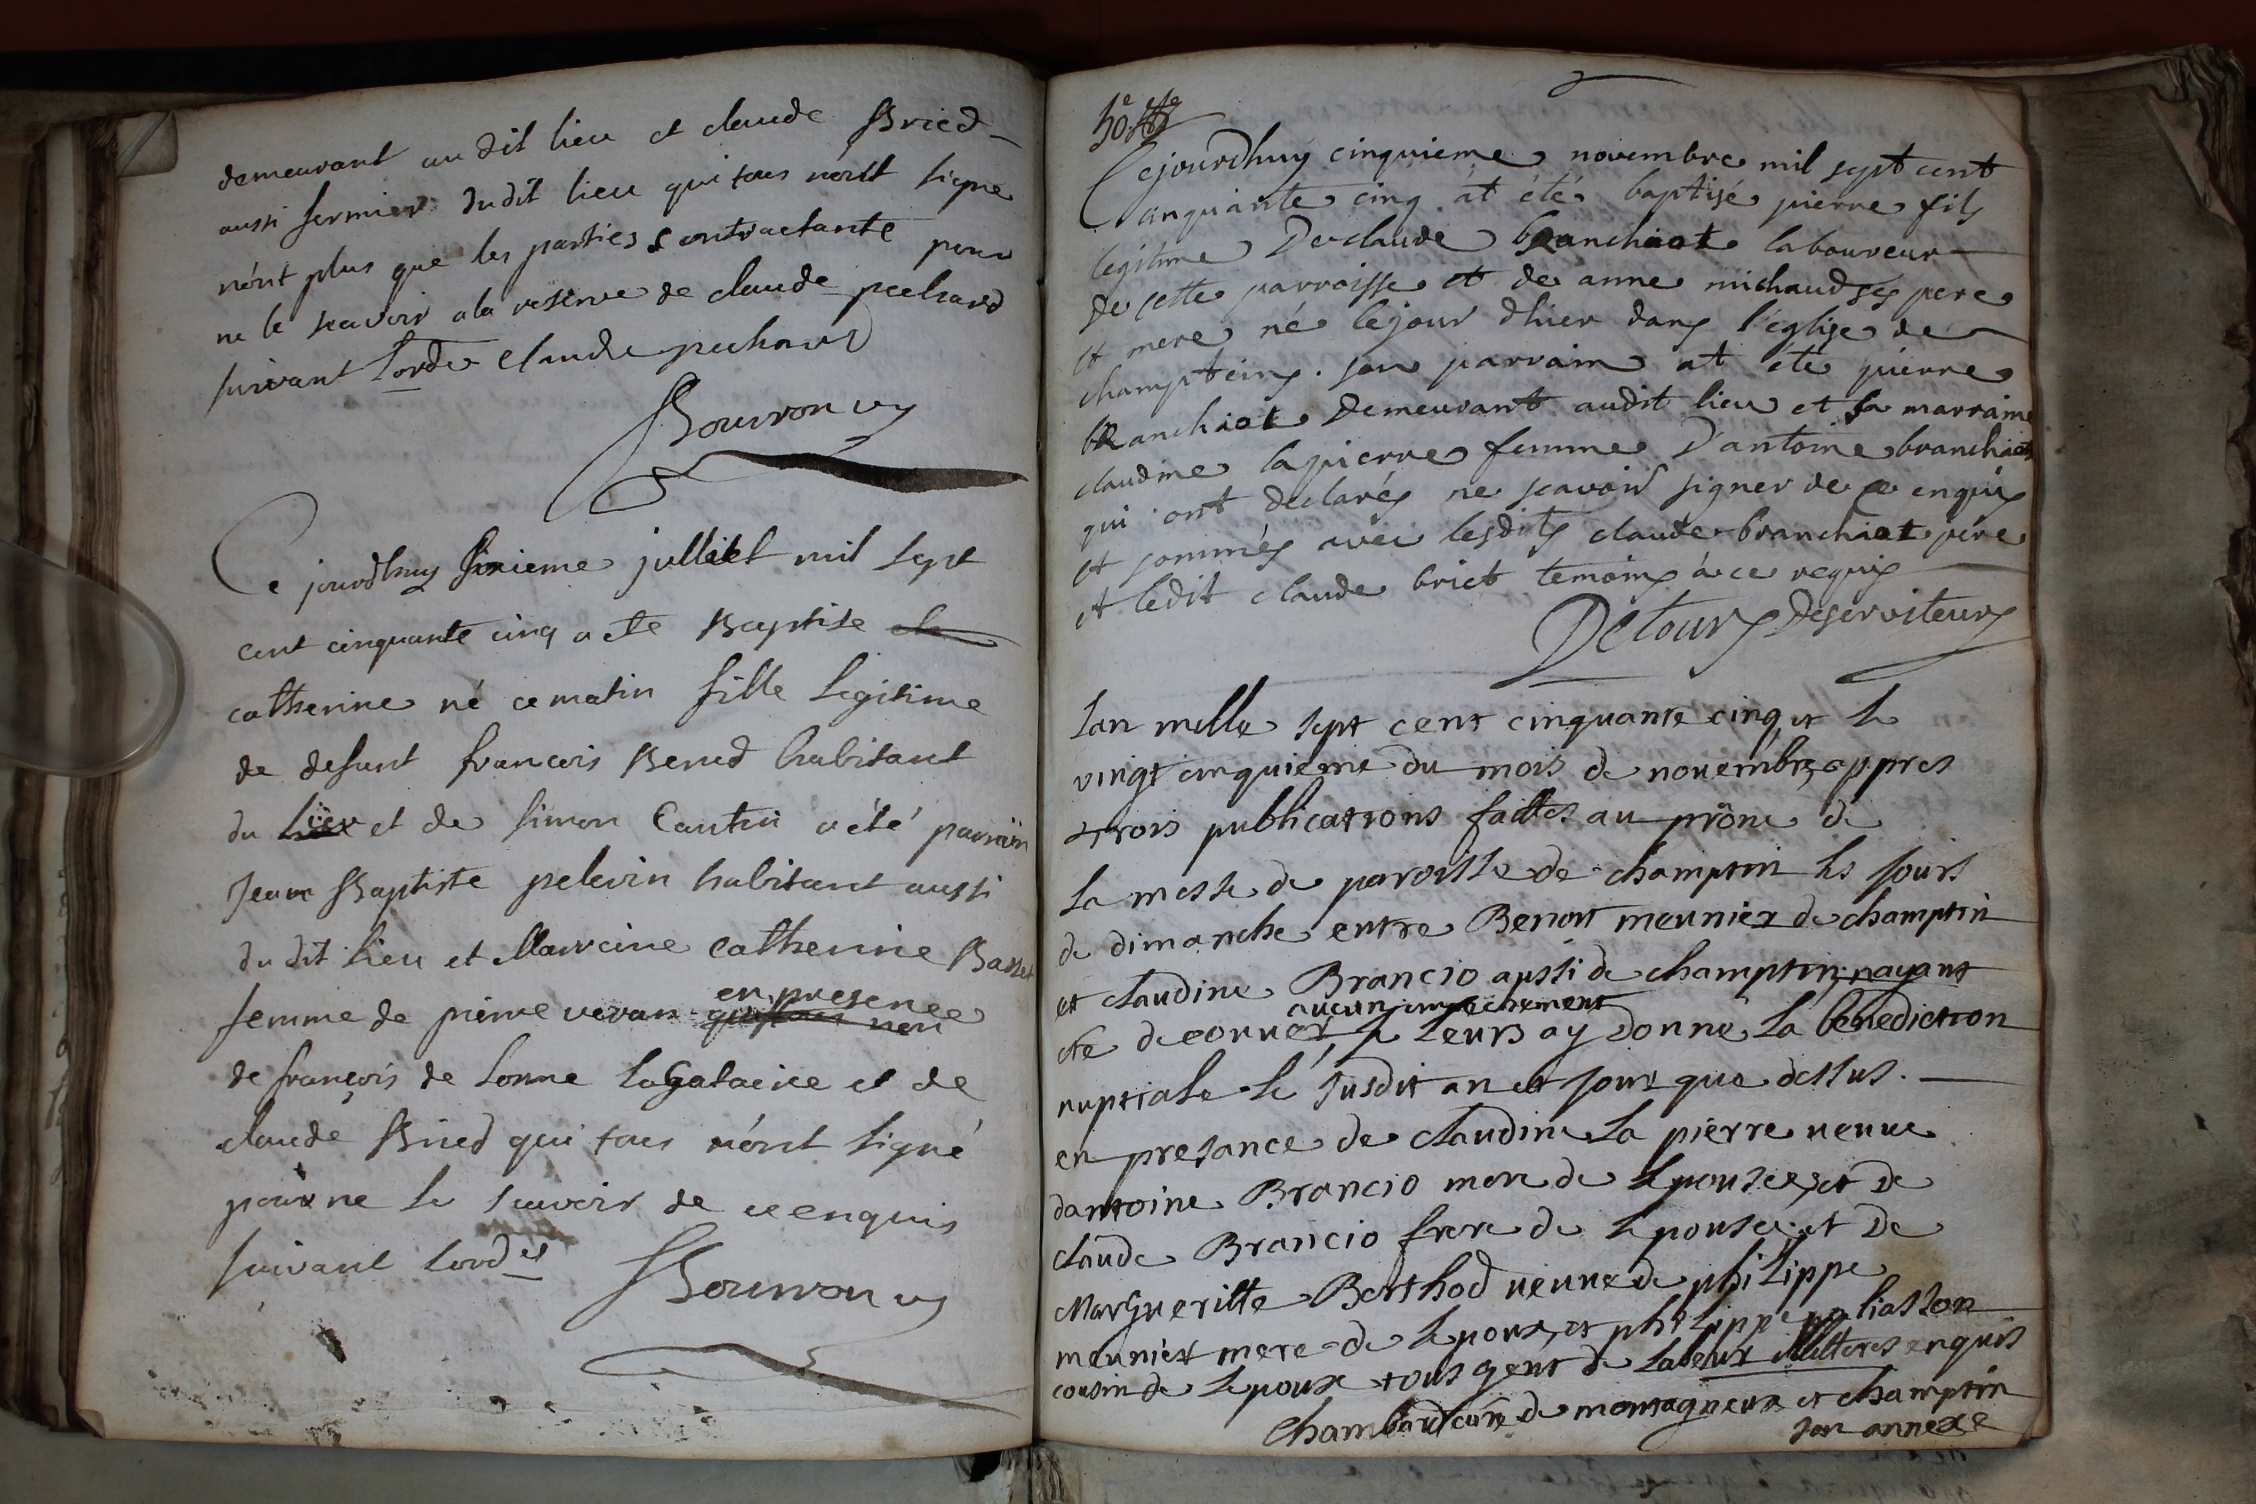 demeurant au dit lieu et claude Bried
aussi fermier dudit lieu qui tous n'ont signe
n'ont plus que les parties contractante pour
ne le scavoir a la reserve de claude pechard
suivant Lorde claude pechard
Bourron
Ce jourdhuy sixieme julliet mil sept
cent cinquante cinq a ete Baptise
catherine né ce matin fille legitime
de defunt francois Benod habitant
du lieu et de simon Cantin a été parrain
Jean Baptiste pelevin habitant aussi
du dit lieu et Marreine catherine
femme de pierre veran en presence
de françois de Lorme et de
claude Bried qui tous n'ont signé
pour ne le scavoir de ce enquis
suivant Lord
Bourron
50e
Cejourdhuy cinquieme novembre mil sept cent
cinquante cinq at été baptisé pierre fils
legitime De claude branchiot laboureur
de cette parroisse et de anne michaud ses pere
et mere né le jour dhier dans l'église de
champteins. son parrain at été pierre
branchiot Demeurant audit lieu et sa marraine
claudine lapierre femme D'antoine branchiot
qui ont declarés ne scavoir signer de ce enquis
et sommés avec lesdits claude branchiot père
et ledit claude briet temoins à ce requis
Detours Deserviteurs
lan mille sept cent cinquante cinq et le
vingt cinquieme du mois de novembre appres
trois publications faittes au prône de
la messe de paroisse de champtin les jours
de dimanche entre Benoit meunier de champtin
et claudine Brancio aussi de champtin nayant
aucun impechement
ete decouver, je leurs ay donné la benediction
nuptiale le susdit an et jour que dessus.
en presance de claudine la pierre veuve
dantoine Brancio mere de lepousee, et de
claude Brancio frere de lepousee et de
Margueritte Berthod veuve de philippe
meunier mere de lepoux, et philippe
cousin de lepoux tous gens de labeur illitteres enquis
Chambard curé de montagneux et champtin
son annexe